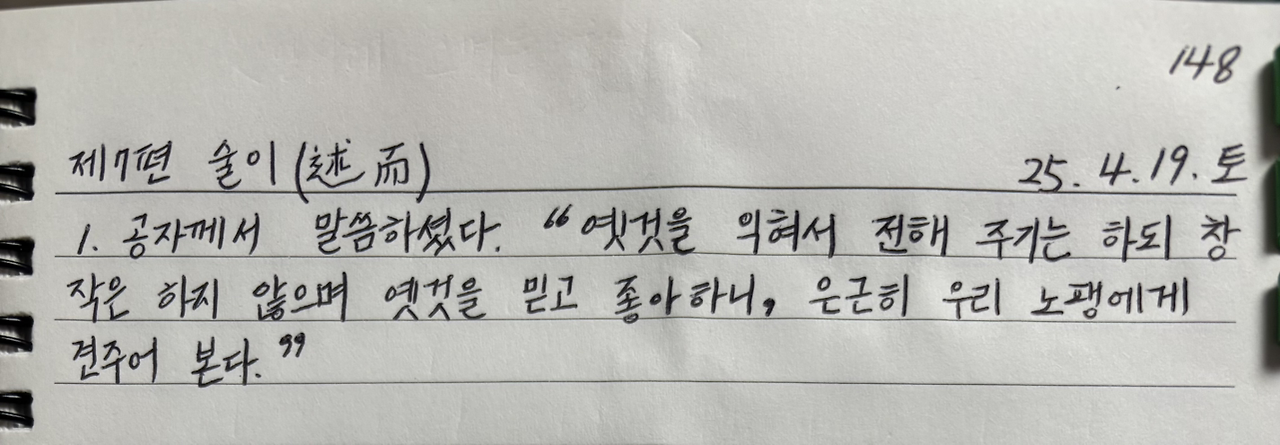 148
제7편 술이(述而) 25. 4. 19. 토
1. 공자께서 말씀하셨다. “옛것을 익혀서 전해 주기는 하되 창
작은 하지 않으며 옛것을 믿고 좋아하니, 은근히 우리 노팽에게
견주어 본다.”